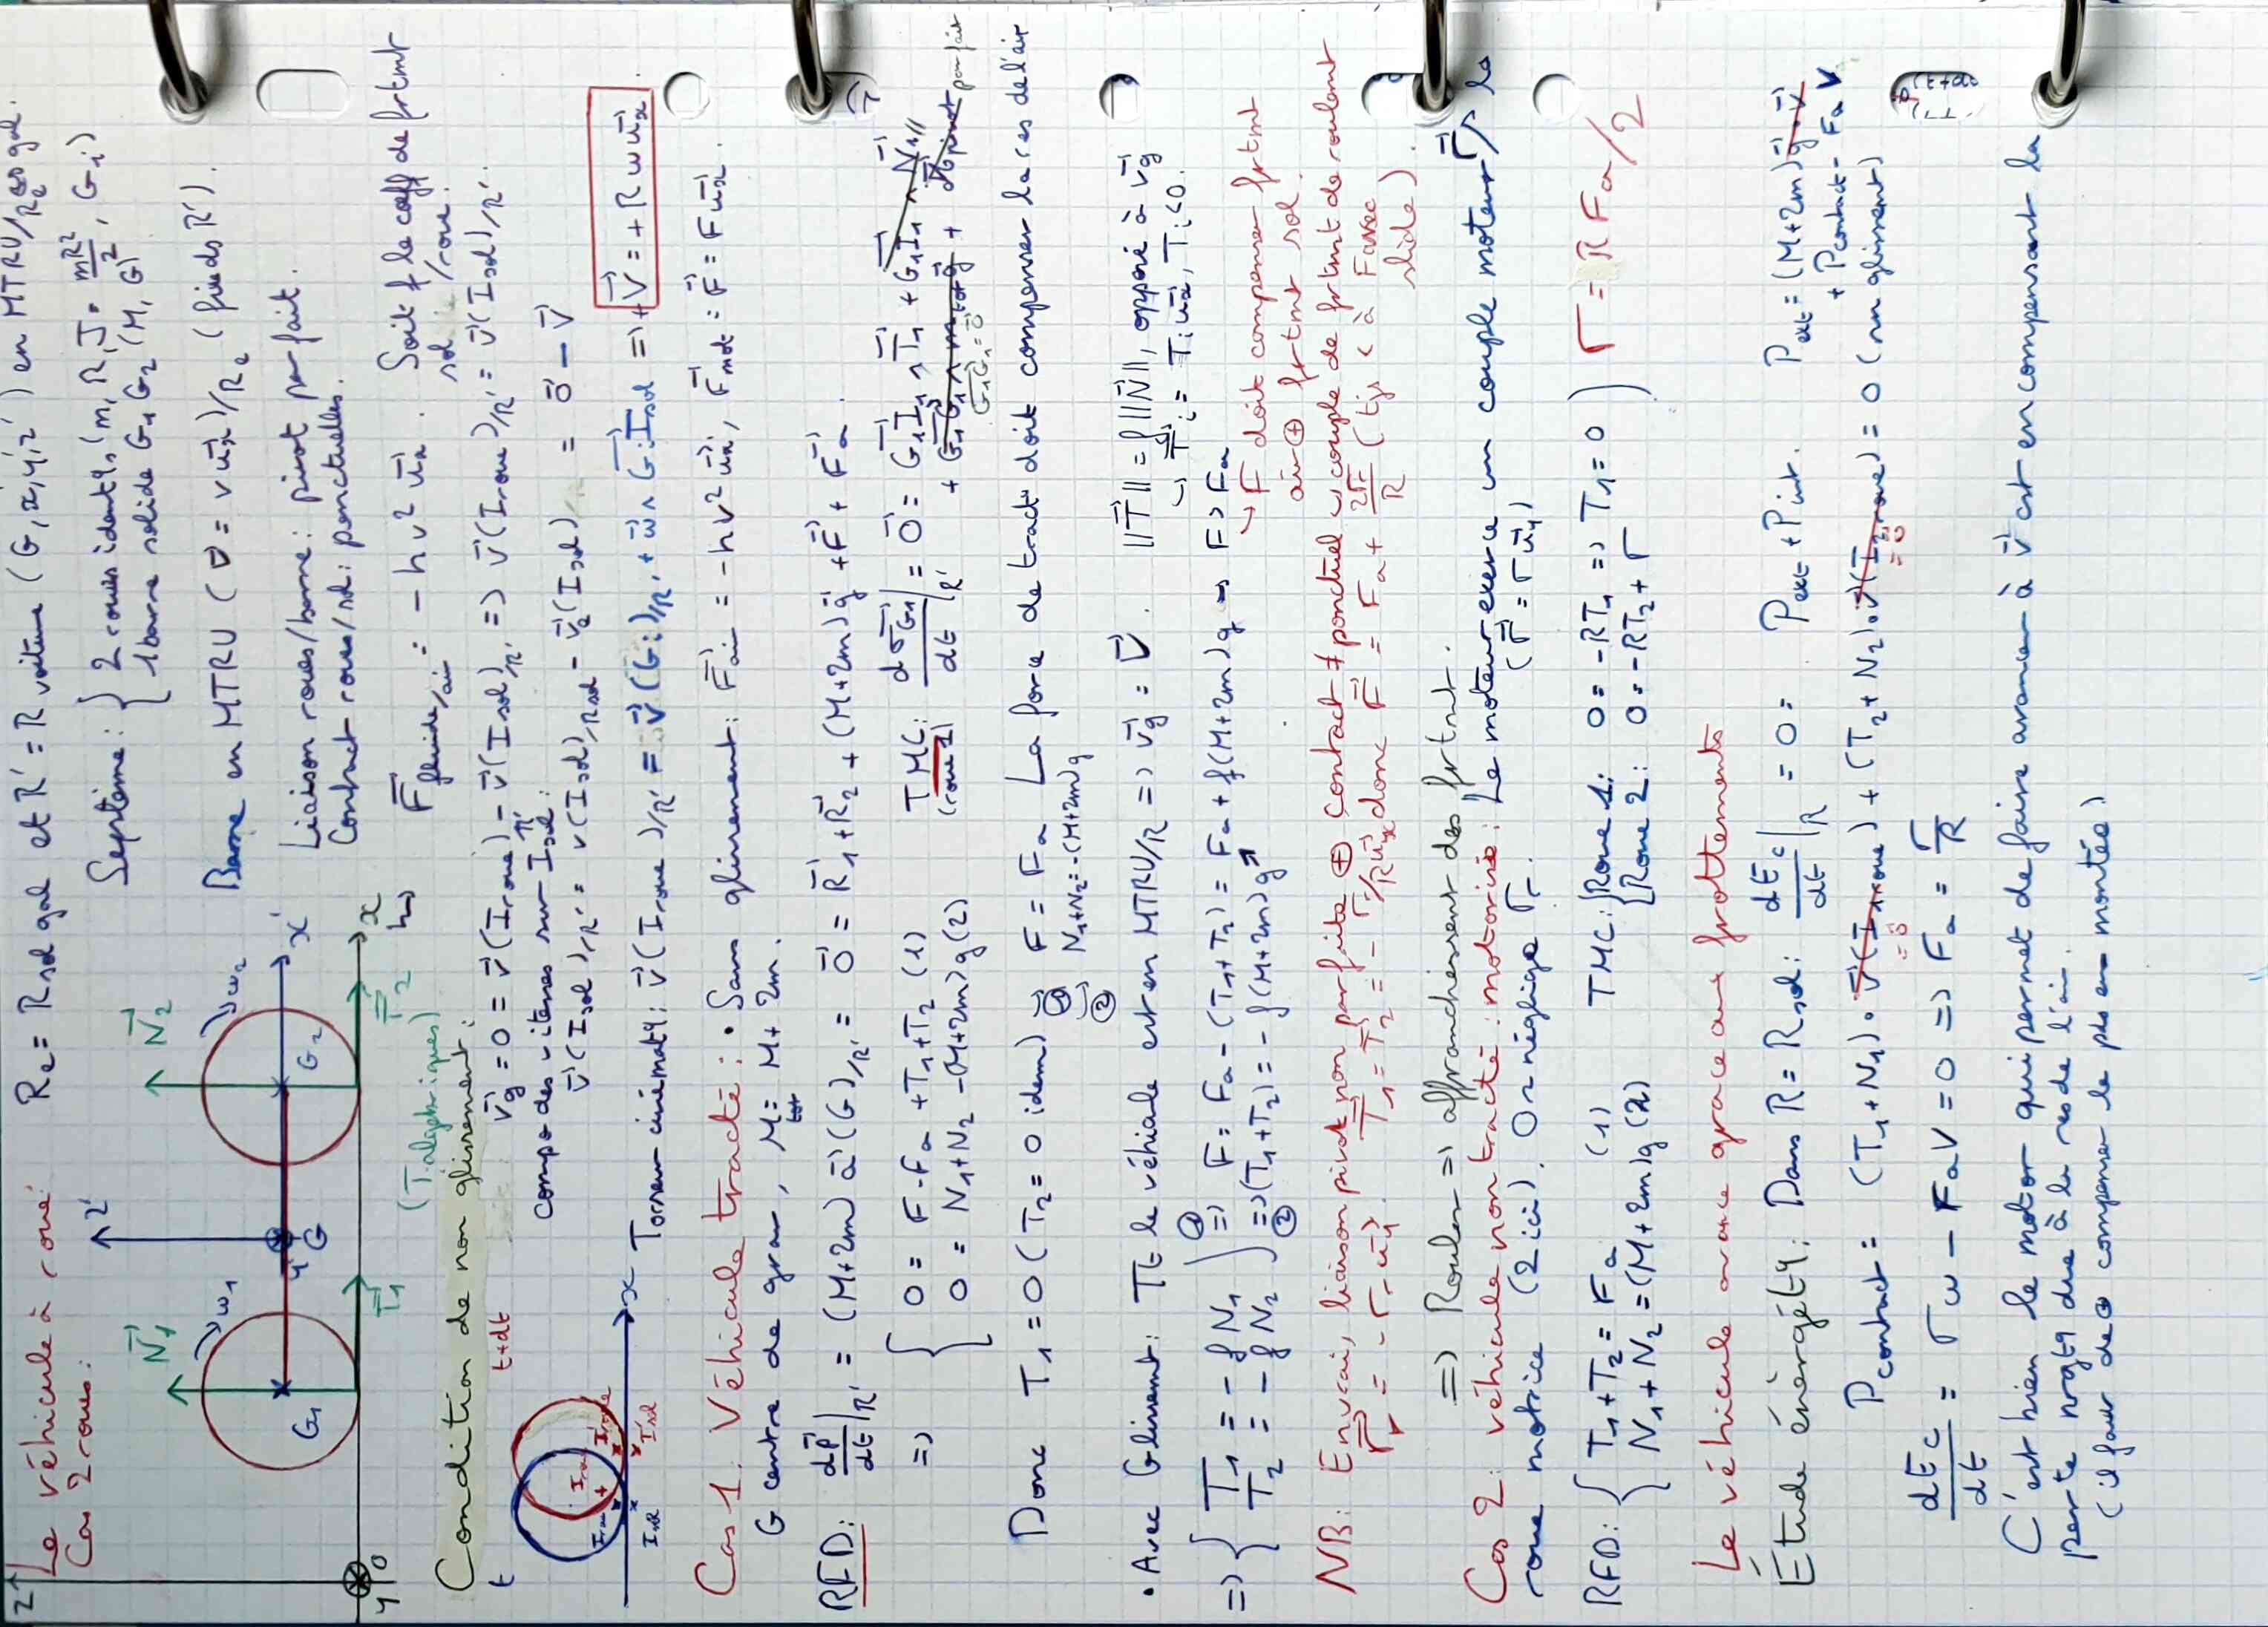 Le véhicule à roue:
Cas 2 roues:
Re = Rsol gal et R' = R voiture (G, x', y', z') en MTRU/Re gal.
Système: { 2 roues identq, (m, R, J = mR²/2, Gi)
1 barre solide G1G2 (M, G)
Barre en MTRU (V⃗ = v u⃗x)/Re (fixe ds R').
Liaison roues/barre: pivot parfait.
Contact roues/sol: ponctuelles.
z
z'
N⃗1
N⃗2
ω1
ω2
G1
G
G2
y'
x'
x
T⃗1
T⃗2
y
0
(T algébriques)
F⃗ fluide/air = - h v² u⃗x. Soit f le coeff de frtmt
sol/roue.
Condition de non glissement:
v⃗g = 0⃗ = v⃗(Iroue) - v⃗(Isol)/R' => v⃗(Iroue)/R' = v⃗(Isol)/R'.
compo des vitesses sur Isol:
v⃗(Isol)/R' = v(Isol)/Rsol - v⃗e(Isol) = 0⃗ - V⃗
t
t+dt
Iroue
Isol
I'roue
I'sol
x
Torseur cinématq: v⃗(Iroue)/R' = v⃗(Gi)/R' + ω⃗ ∧ GiIsol => +V⃗ = + R ω u⃗x
Cas 1. Véhicule tracté: • Sans glissement: F⃗air = -hv² u⃗x, F⃗mot = F⃗ = F u⃗x.
G centre de grav, Mtot = M + 2m.
RFD: dp⃗/dt|R' = (M+2m) a⃗(G)/R' = 0⃗ = R⃗1 + R⃗2 + (M+2m)g⃗ + F⃗ + F⃗a.
=> { 0 = F - Fa + T1 + T2 (1)
0 = N1 + N2 - (M+2m)g (2)
TMC: (roue 1) dσ⃗G1/dt|R' = 0⃗ = G1I1 ∧ T⃗1 + G1I1 ∧ N⃗1
+ G1G1 ∧ mtot g⃗ + M⃗pivot parfait
G1G1 = 0⃗
Donc T1 = 0 (T2 = 0 idem) => F = Fa La force de tract° doit compenser la res de l'air
N1 + N2 = (M+2m)g
• Avec Glissement: Tt le véhicule est en MTRU/R => v⃗g = V⃗. ||T⃗|| = f ||N⃗||, opposé à v⃗g
↳ T⃗i = Ti u⃗x, Ti < 0.
=> { T1 = - f N1
T2 = - f N2 } => F = Fa - (T1+T2) = Fa + f(M+2m)g => F > Fa
=> (T1+T2) = - f (M+2m)g
↳ F doit compenser frtmt
air ⊕ frtmt sol.
NB: En vrai, liaison pivot non parfaite ⊕ contact ≠ ponctuel => couple de frtmt de roulant
Γ⃗r = - Γr u⃗y. T⃗1 = T⃗2 = - Γr/R u⃗x donc F = Fa + 2Γr/R (tjs < à F avec
slide)
=> Rouler => affranchissent des frtmt.
Cas 2: véhicule non tracté: motorisé: Le moteur exerce un couple moteur Γ⃗ /s la
roue motrice (2 ici). On néglige Γr. (Γ⃗ = Γ u⃗y)
RFD: { T1 + T2 = Fa (1)
N1 + N2 = (M+2m)g (2)
TMC: { Roue 1: 0 = - RT1 => T1 = 0
Roue 2: 0 = - RT2 + Γ } Γ = R Fa/2
Le véhicule avance grace aux frottements
Etude énergétq: Dans R = Rsol: dEc/dt|R = 0 = Pext + Pint. Pext = (M+2m) g⃗·V⃗
+ Pcontact - Fa V
Pcontact = (T1+N1)·v⃗(I1roue) + (T2+N2)·v⃗(I2roue) = 0 (nn glissment)
= 0⃗
= 0
dEc/dt = Γω - FaV = 0 => Fa = Γ/R
C'est bien le motor qui permet de faire avancer à v⃗ cst en compensant la
perte nrgtq due à la res de l'air.
(il faut de ⊕ compenser le pds en montée)